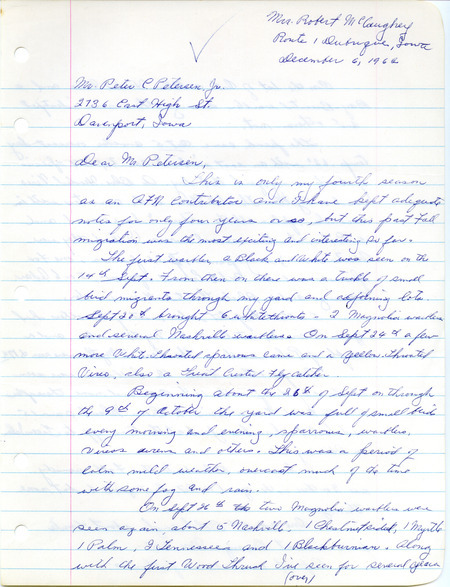 Mrs. Robert McCaughey
Route 1 Dubuque, Iowa
December 6, 1966
Mr. Peter C Petersen Jr.
2736 East High St.
Davenport, Iowa
Dear Mr Petersen,
This is only my fourth season
as an AFN Contributor and I have kept adequate
notes for only four years or so, but this past Fall
migration was the most exciting and interesting so far.
The first warbler a Black and white was seen on the
14th Sept. From then on there was a trickle of small
bird migrants through my yard and adjoining lots.
Sept 20th brought 6 whitethroats - 2 Magnolia warblers
and several Nashville warblers. On Sept 24th a few
more White-throated sparrows came and a Yellow-throated
Vireo, also a Great Crested Flycatcher.
Beginning about the 26th of Sept on through
the 9th of October the yard was full of small birds
every morning and evening, sparrows, warblers,
vireos and others. This was a period of
calm mild weather, overcast much of the time
with some fog and rain.
On Sept 26th two Magnolia warblers were
seen again, about 5 Nashville, 1 Chestnut sided, 1 Myrtle
1 Palm, 2 Tennessees and 1 Blackburnian. Along
with the first Wood Thrush I've seen for several years
(over)